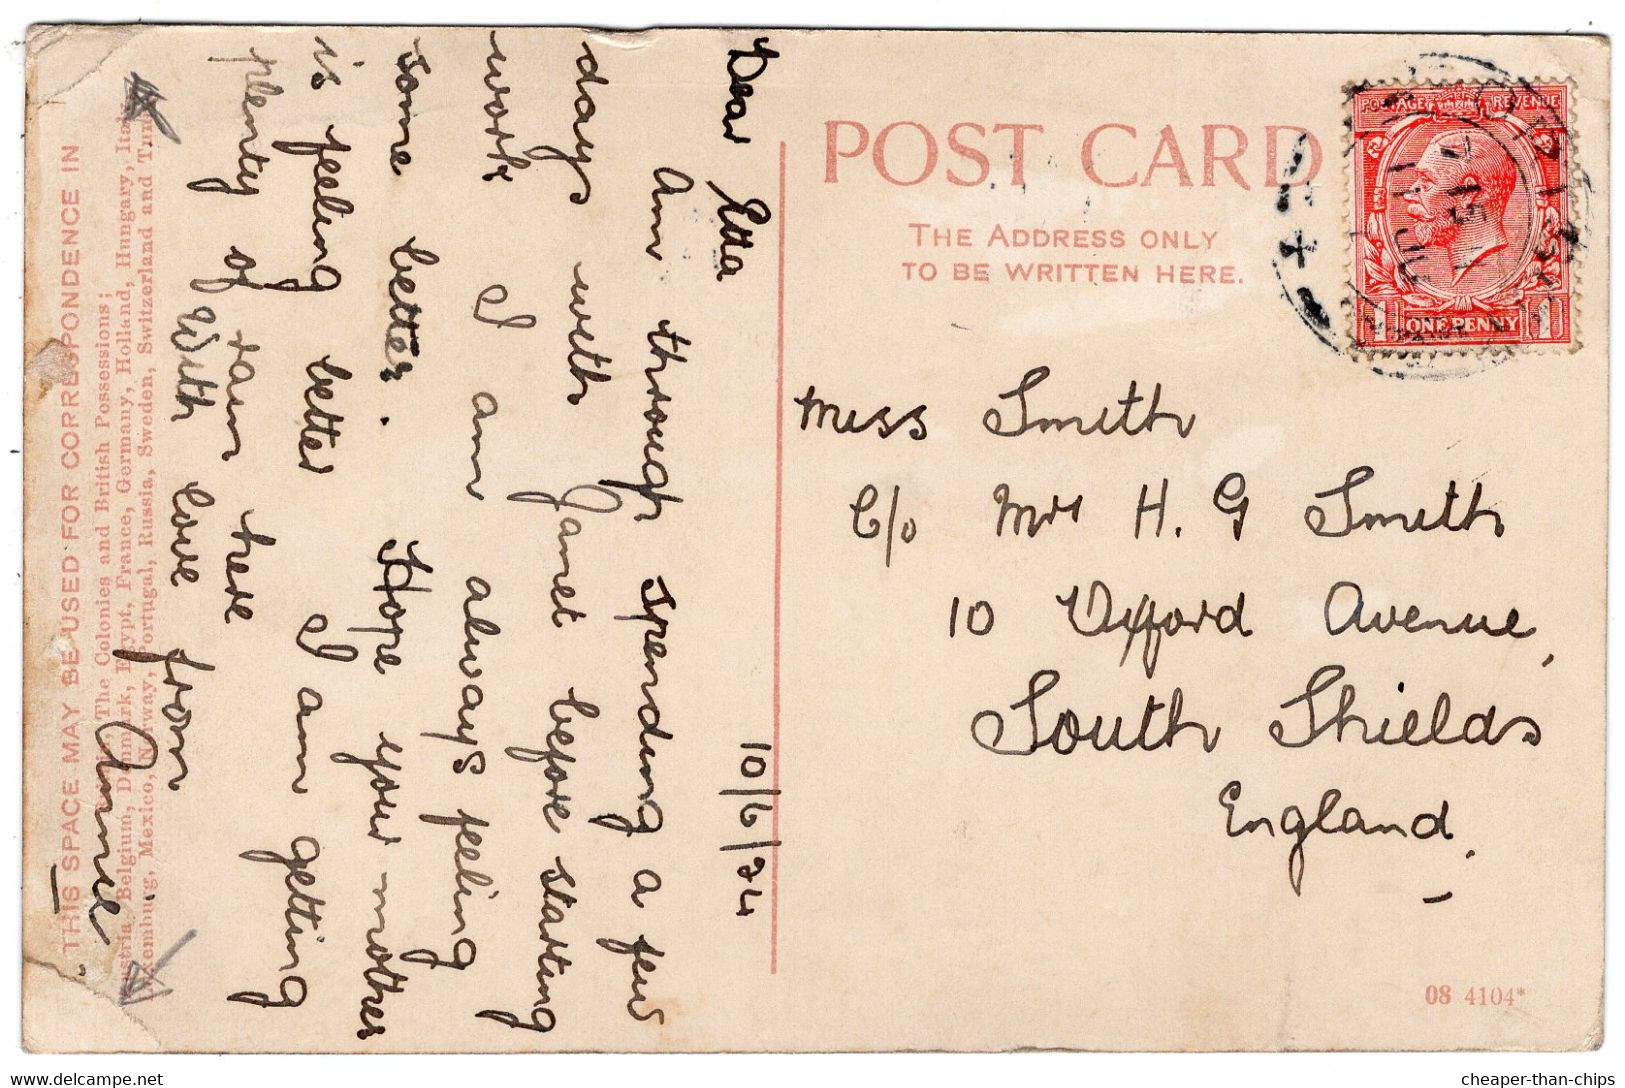 POST CARD
THE ADDRESS ONLY
TO BE WRITTEN HERE.
POSTAGE REVENUE
1 ONE PENNY 1
Miss Smith
C/o Mrs H. G Smith
10 Oxford Avenue,
South Shields
England,
08 4104*
10/6/24
Dear Etta
Am through spending a few
days with Janet before starting
work I am always feeling
some better. Hope your mother
is feeling better I am getting
plenty of rain here
With love from
Annie
THIS SPACE MAY BE USED FOR CORRESPONDENCE IN
The Colonies and British Possessions;
Austria, Belgium, Denmark, Egypt, France, Germany, Holland, Hungary, Italy,
Luxemburg, Mexico, Norway, Portugal, Russia, Sweden, Switzerland and
www.delcampe.net
cheaper-than-chips